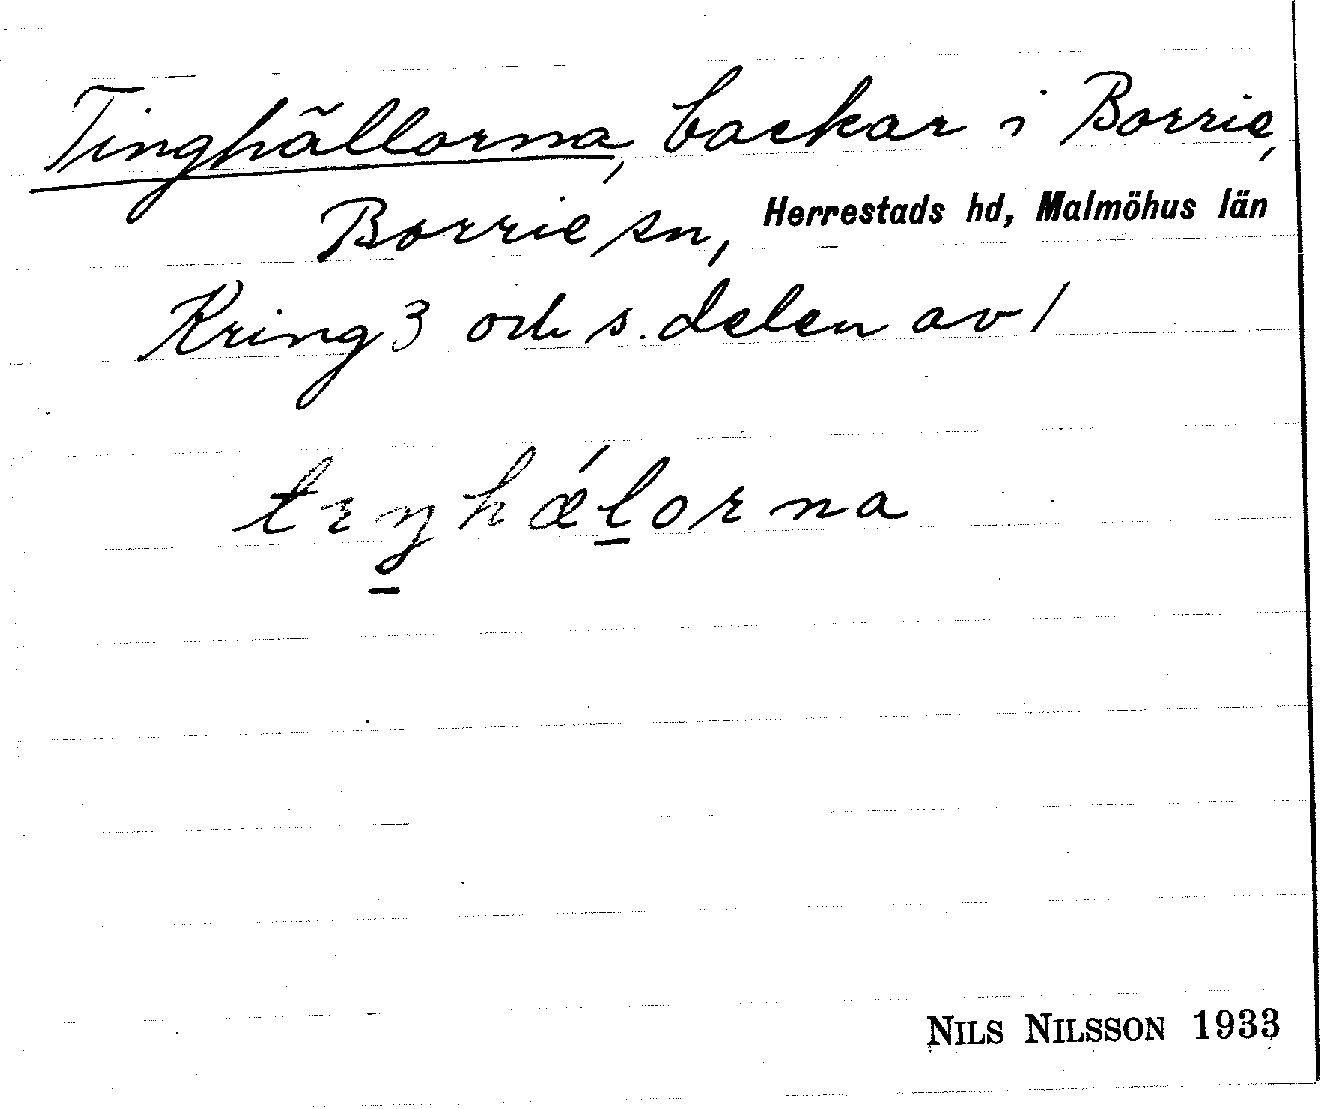 Tinghällorna, backar i Borrie,
Borrie sn, Herrestads hd, Malmöhus län
Kring 3 och s. delen av 1
tıŋhǽlorna
NILS NILSSON 1933